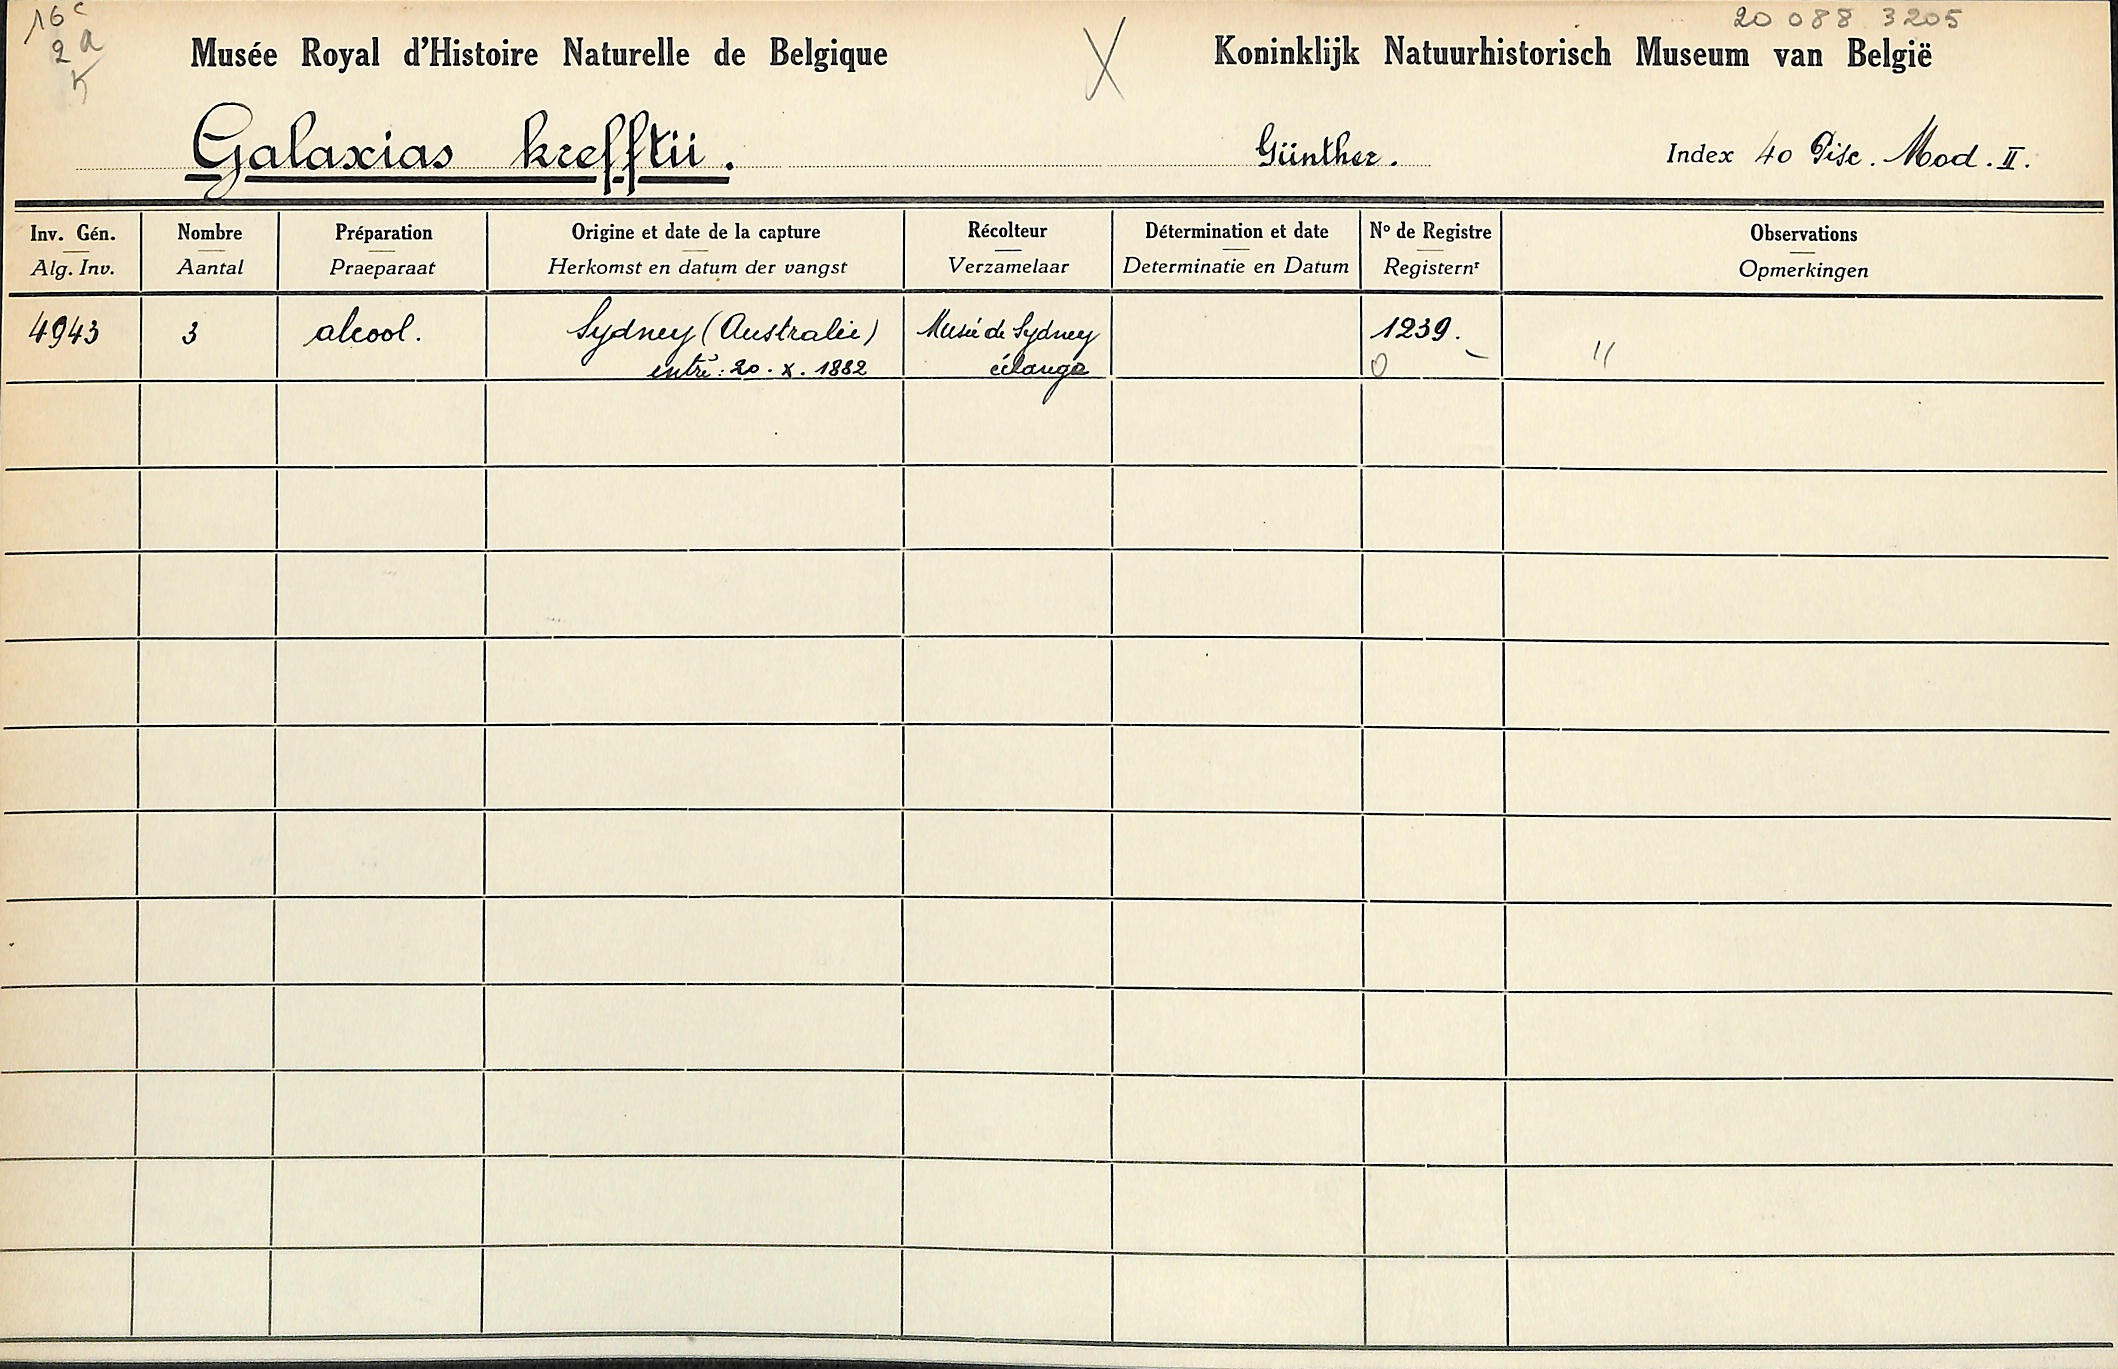 16c
2a
K
20 088 3205
Musée Royal d'Histoire Naturelle de Belgique
X
Koninklijk Natuurhistorisch Museum van België
Galaxias krefftii. Günther. Index 40 Pisc. Mod. II.
Inv. Gén. Nombre Préparation Origine et date de la capture Récolteur Détermination et date No de Registre Observations
Alg. Inv. Aantal Praeparaat Herkomst en datum der vangst Verzamelaar Determinatie en Datum Registernr Opmerkingen
4943 3 alcool. Sydney (Australie) Musée de Sydney 1239. "
entré: 20. X. 1882 échange 0